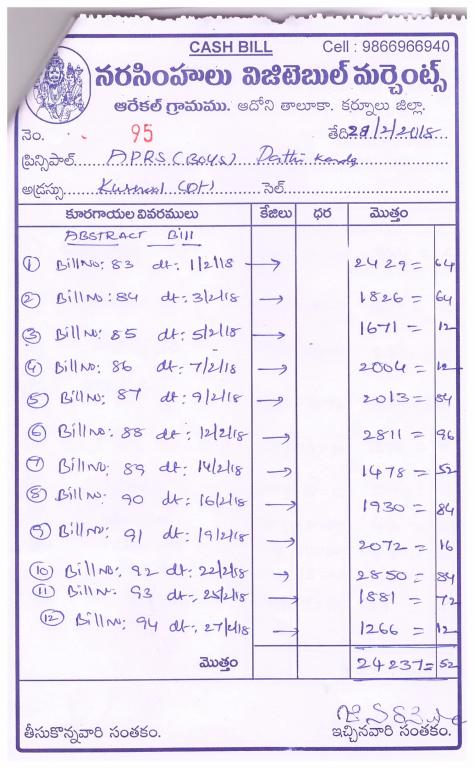 CASH BILL Cell : 9866966940
నరసింహలు విజిటెబుల్ మర్చెంట్స్
ఆరేకల్ గ్రామము. ఆదోని తాలూకా. కర్నూలు జిల్లా.
నెం. 95 తేది 28/2/2018
ప్రిన్సిపాల్ APRS (Boys)
అడ్రస్సు Kurnool (Dt) సెల్
కూరగాయల వివరములు కేజీలు ధర మొత్తం
ABSTRACT Bill
① Bill No: 83 dt: 1/2/18 → 2429 = 64
② Bill No: 84 dt: 3/2/18 → 1826 = 64
③ Bill No: 85 dt: 5/2/18 → 1671 = 12
④ Bill No: 86 dt: 7/2/18 → 2004 = 12
⑤ Bill No: 87 dt: 9/2/18 → 2013 = 84
⑥ Bill No: 88 dt: 12/2/18 → 2811 = 96
⑦ Bill No: 89 dt: 14/2/18 → 1478 = 52
⑧ Bill No: 90 dt: 16/2/18 → 1930 = 84
⑨ Bill No: 91 dt: 19/2/18 → 2072 = 16
⑩ Bill No: 92 dt: 22/2/18 → 2850 = 84
⑪ Bill No: 93 dt: 25/2/18 → 1881 = 72
⑫ Bill No: 94 dt: 27/2/18 → 1266 = 12
మొత్తం 24237 = 52
తీసుకొన్నవారి సంతకం. ఇచ్చినవారి సంతకం.